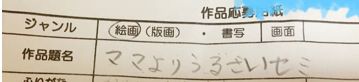 作品応募用紙
ジャンル 絵画 (版画) ・ 書写 画面
作品題名 ママよりうるさいセミ
ふりがな